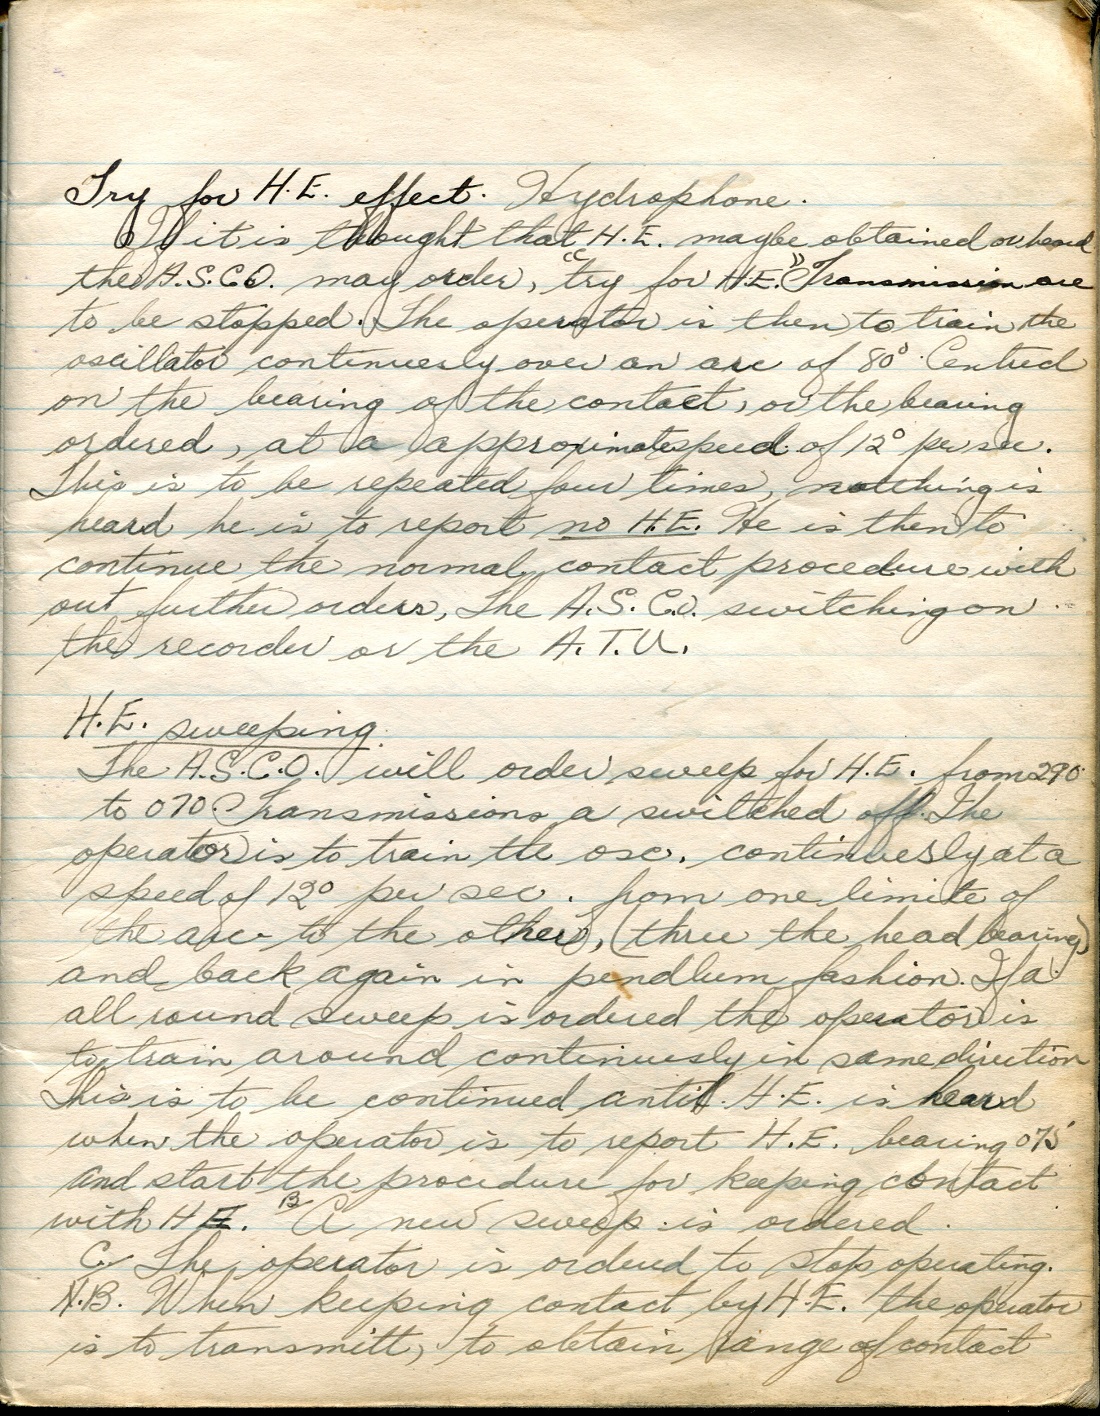 Try for H.E. effect. Hydrophone.
If it is thought that H.E. maybe obtained or heard
the A.S.C.O. may order, "try for H.E." Transmission are
to be stopped. The operator is then to train the
oscillator continuerly over an arc of 80° Centred
on the bearing of the contact, or the bearing
ordered, at a approximate speed of 12° per sec.
This is to be repeated four times, notthing is
heard he is to report no H.E. He is then to
continue the normal, contact procedure with
out further orders, The A.S.C.O. switching on
the recorder or the A.T.U.
H.E. sweeping.
The A.S.C.O. will order sweep for H.E. from 290
to 070 Transmissions a switched off. The
operator is to train the osc. continuesly at a
speed of 12° per sec. from one limite of
the arc to the other, (three the head bearing)
and back again in pendlum fashion. If a
all round sweep is ordered the operator is
to train around continuesly in same direction
This is to be continued until H.E. is heard
when the operator is to report H.E. bearing 075
and start the procedure for keeping contact
with H.E. B A new sweep is ordered.
C. The operator is ordered to stop operating.
N.B. When keeping contact by H.E. the operator
is to transmitt, to obtain range of contact